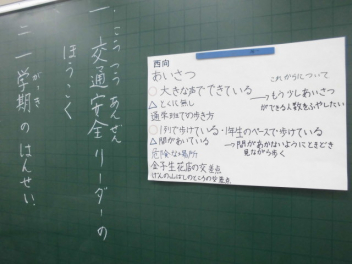 一、交通安全リーダーの
こうつうあんぜん
ほうこく
二、一学期のはんせい
がっき
西向
あいさつ
これからについて
○大きな声でできている
△とくに無し
→もう少しあいさつ
ができる人数をふやしたい
通学班での歩き方
○1列で歩けている・1年生のペースで歩けている
△間があいている
→間があかないようにときどき
見ながら歩く
危険な場所
金子生花店の交差点